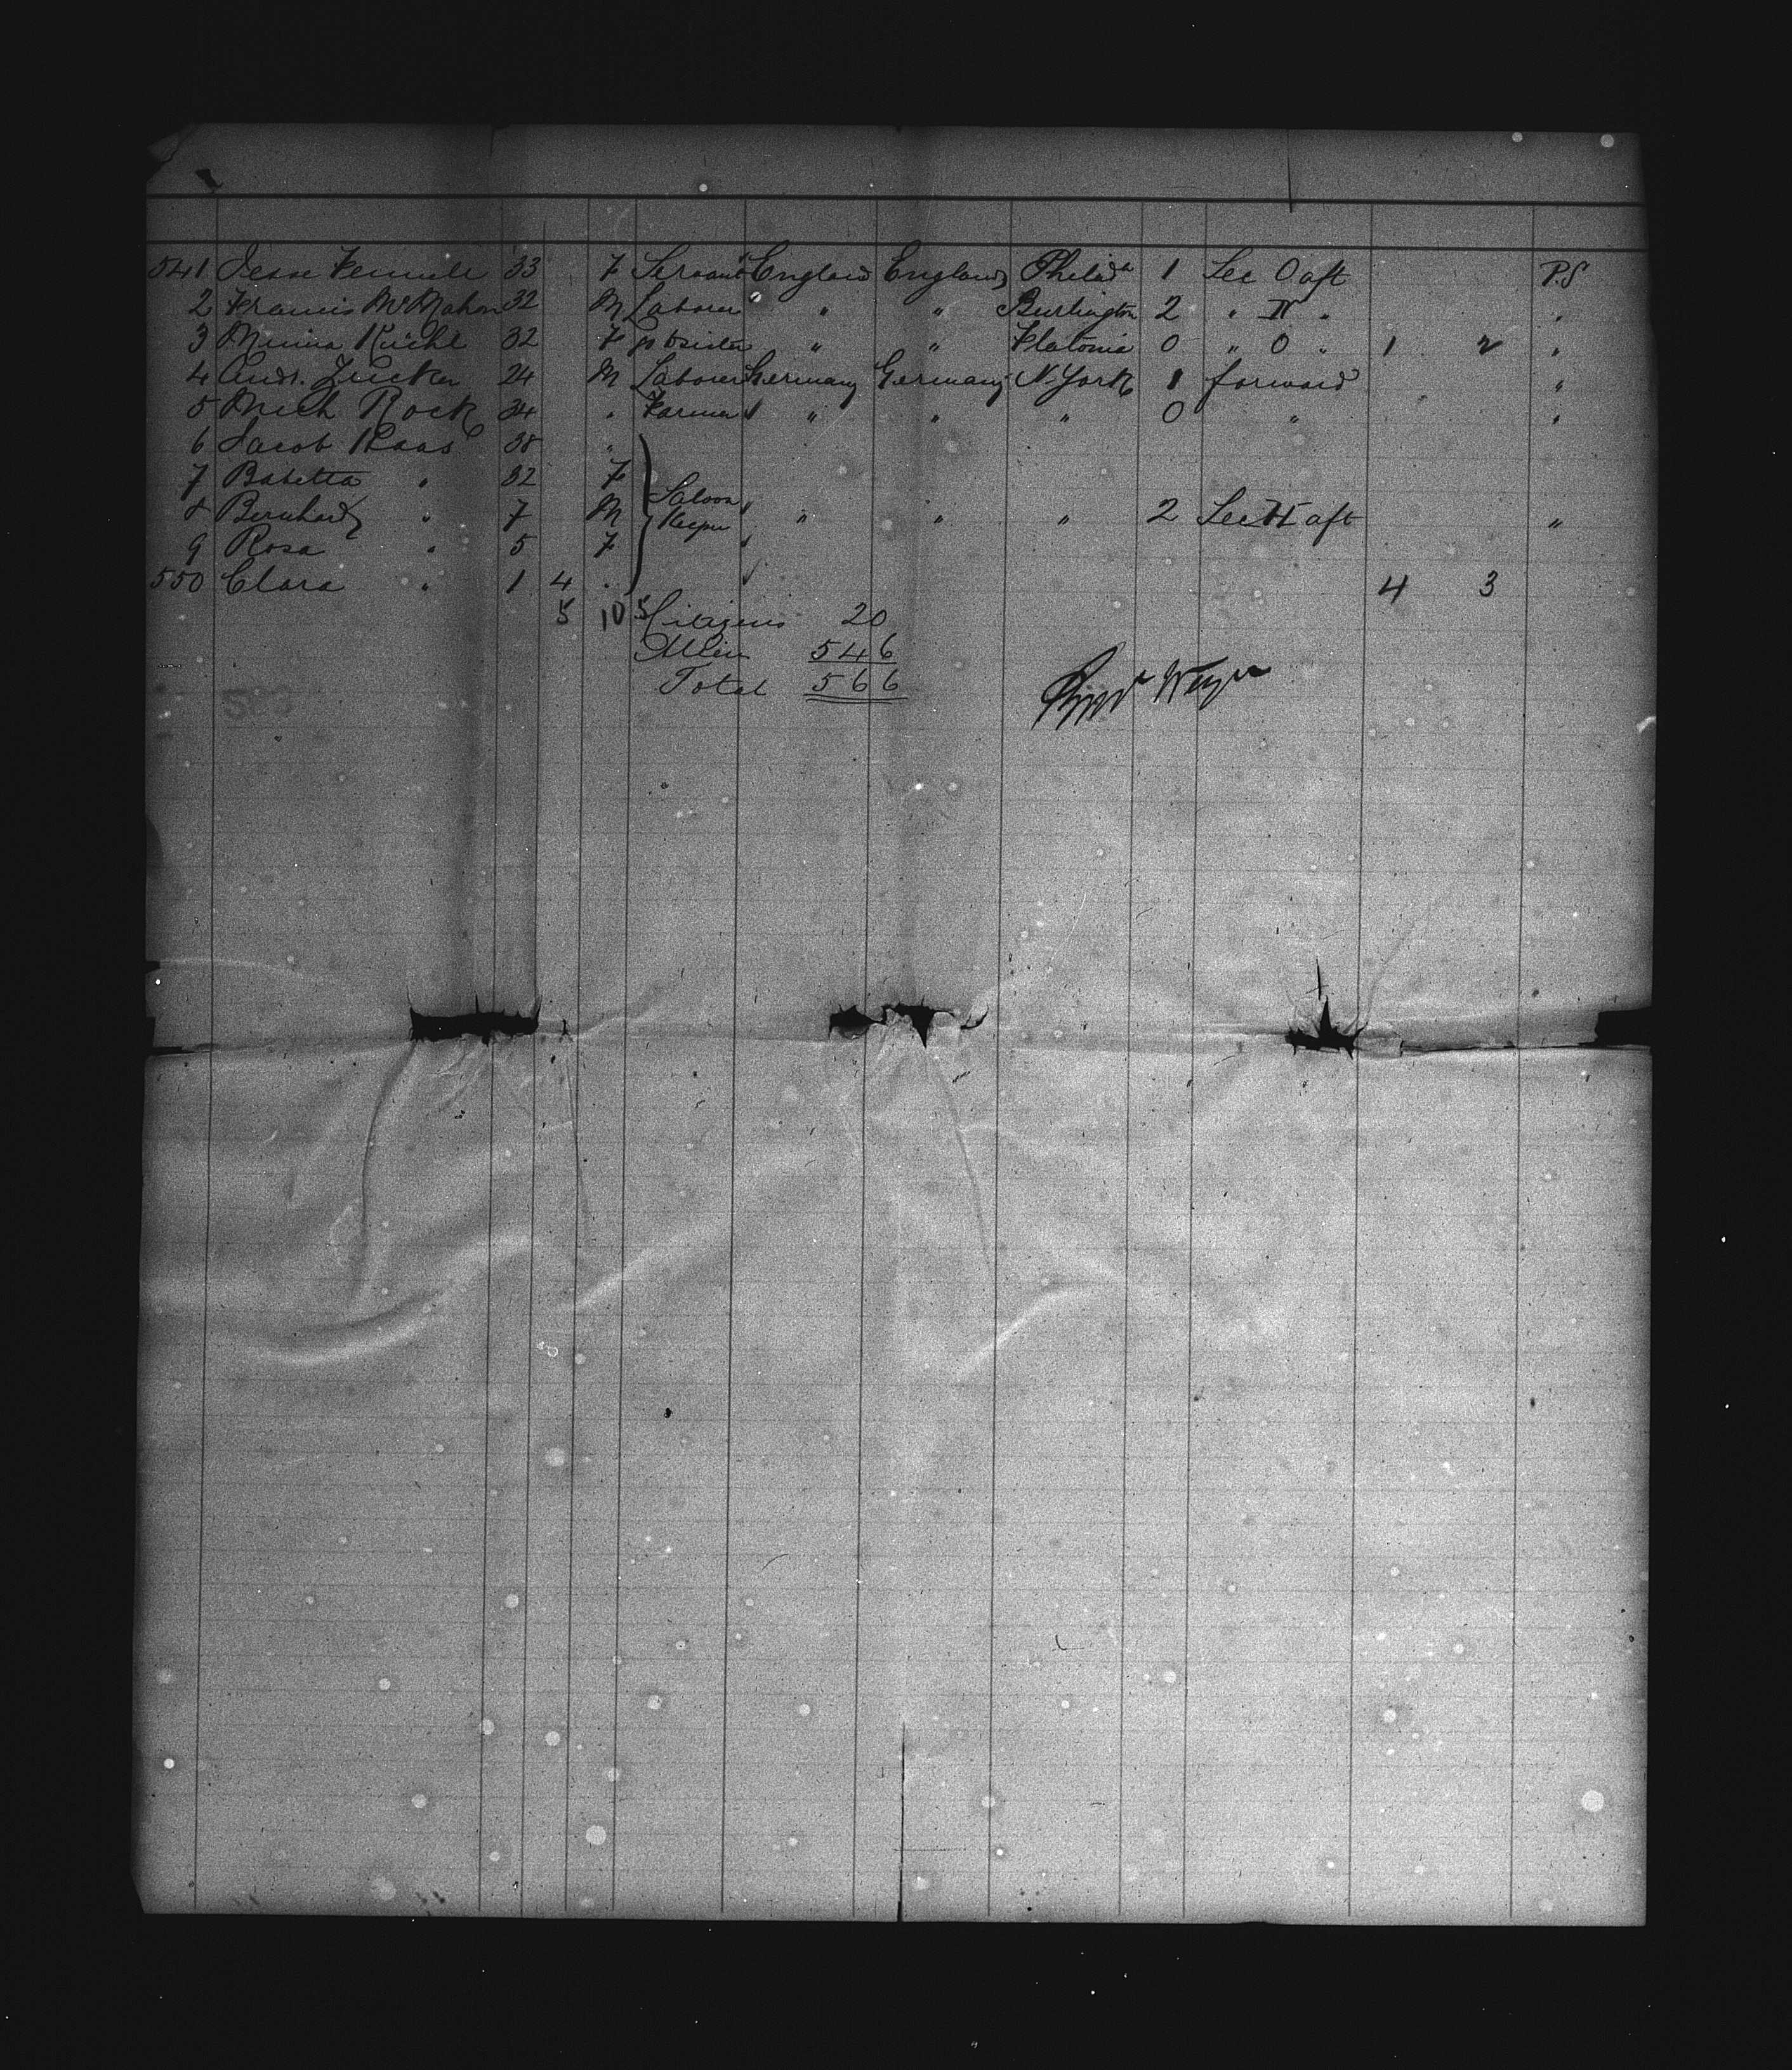 541 Jesse Fennele 33 F Servant England England Philada 1 Sec O aft P.S
2 Francis McMahon 32 M Laborer " " Burlington 2 " II " "
3 Minna Kuchl 32 F " " Flatonia 0 " O " 1 2 "
4 Andr. Zucker 24 M Laborer Germany Germany N. York 1 forward "
5 Mich Rock 34 " Farmer " " " 0 " "
6 Jacob Haas 38 "
7 Babetta " 32 F
8 Bernhard " 7 M Saloon Keeper " " " 2 Sec H aft "
9 Rosa " 5 F
550 Clara " 1 4 " 4 3
5 10 5 Citizens 20
Alien 546
Total 566